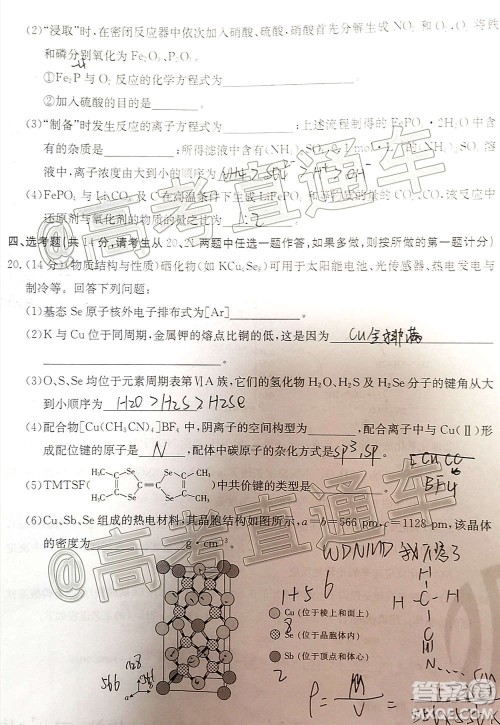 (2)“浸取”时,在密闭反应器中依次加入硝酸、硫酸,硝酸首先分解生成NO₂和O₂,将铁
和磷分别氧化为Fe₂O₃、P₂O₅。
①Fe₂P与O₂反应的化学方程式为
②加入硫酸的目的是
(3)“制备”时发生反应的离子方程式为;上述流程制得的FePO₄·2H₂O中含
有的杂质是;所得滤液中含有(NH₄)₂SO₄
液中,离子浓度由大到小的顺序为
(4)FePO₄与Li₂CO₃及C在高温条件下生成LiFePO₄和CO₂,该反应中
还原剂与氧化剂的物质的量之比为
四、选考题(共14分,请考生从20、21两题中任选一题作答,如果多做,则按所做的第一题计分)
20.(14分)(物质结构与性质)硒化物(如KCu₄Se₈)可用于太阳能电池、光传感器、热电发电与
制冷等。回答下列问题:
(1)基态Se原子核外电子排布式为[Ar]
(2)K与Cu位于同周期,金属钾的熔点比铜的低,这是因为 Cu全排满
(3)O、S、Se均位于元素周期表第ⅥA族,它们的氢化物H₂O、H₂S及H₂Se分子的键角从大
到小顺序为 H2O > H2S > H2Se
(4)配合物[Cu(CH₃CN)₄]BF₄中,阴离子的空间构型为,配合离子中与Cu(Ⅱ)形
成配位键的原子是 N,配体中碳原子的杂化方式是 sp³,sp。
BF4
(5)TMTSF( H₃C H₃C Se Se Se Se CH₃ CH₃ )中共价键的类型是。
(6)Cu、Sb、Se组成的热电材料,其晶胞结构如图所示,a=b=566 pm,c=1128 pm,该晶体
的密度为 g·cm⁻³。
1+5 6
H
H-C-H
C
N
Cu(位于棱上和面上)
8
Se(位于晶胞体内)
Sb(位于顶点和体心)
2
1128
566
ρ = M/V =
@高考直通车
@高考直通车
@高考直通车
答案圈
MXQE.COM